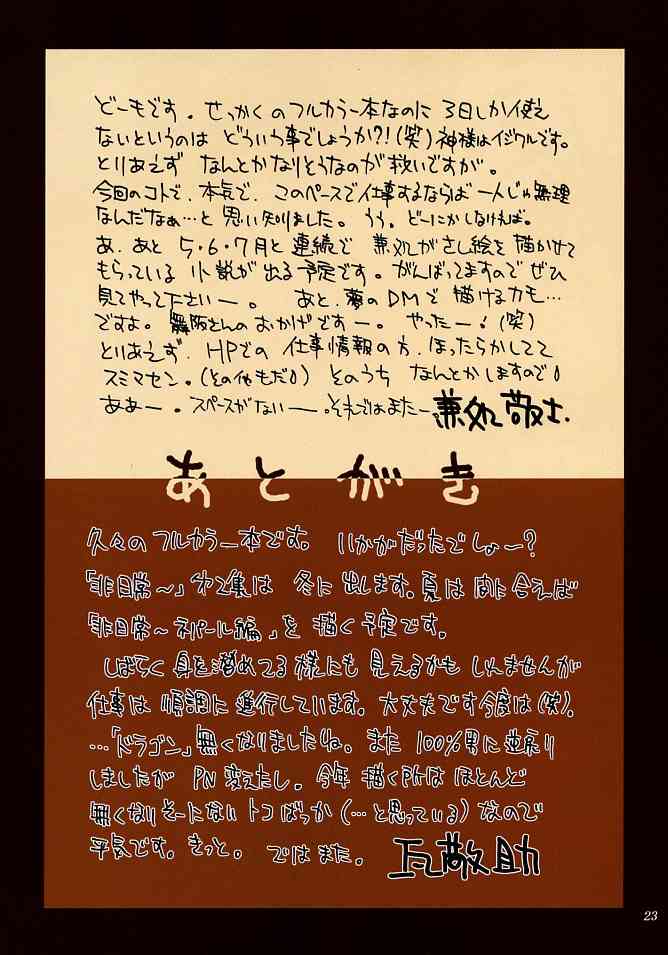 どーもです。せっかくのフルカラー本なのに 3日しか使え
ないというのは どういう事でしょうか?!(笑)神様はイジワルです。
とりあえず なんとかなりそうなのが救いですが。
今回のコトで、本気で、このペースで仕事するならば一人じゃ無理
なんだなぁ…と 思い知りました。うう。どーにかしなければ。
あ、あと 5.6.7月と連続で 兼処がさし絵を描かせて
もらっている 小説が出る予定です。がんばってますので ぜひ
見てやって下さいー。 あと、夢のDMで描けるカモ…
ですよ。舞阪さんのおかげですー。やったー!(笑)
とりあえず、HPでの 仕事情報の方、ほったらかしてて
スミマセン。(その他もだ) そのうち なんとかしますので
ああー。スペースがないー。それではまたー。兼処敬士.
あとがき
久々のフルカラー本です。 いかがだったでしょ〜?
「非日常〜」第2集は 冬に出します。夏は間に合えば
「非日常〜ネパール編」を 描く予定です。
しばらく身を潜めてる様にも 見えるかも しれませんが
仕事は 順調に進行しています。大丈夫です今度は(笑)。
…「ドラゴン」無くなりましたね。また 100%男に逆戻り
しましたが PN変えたし。今年 描くPNは ほとんど
無くなりそーにない トコばっか(…と思っている)なので
平気です。きっと。 ではまた。 瓦敬助
23